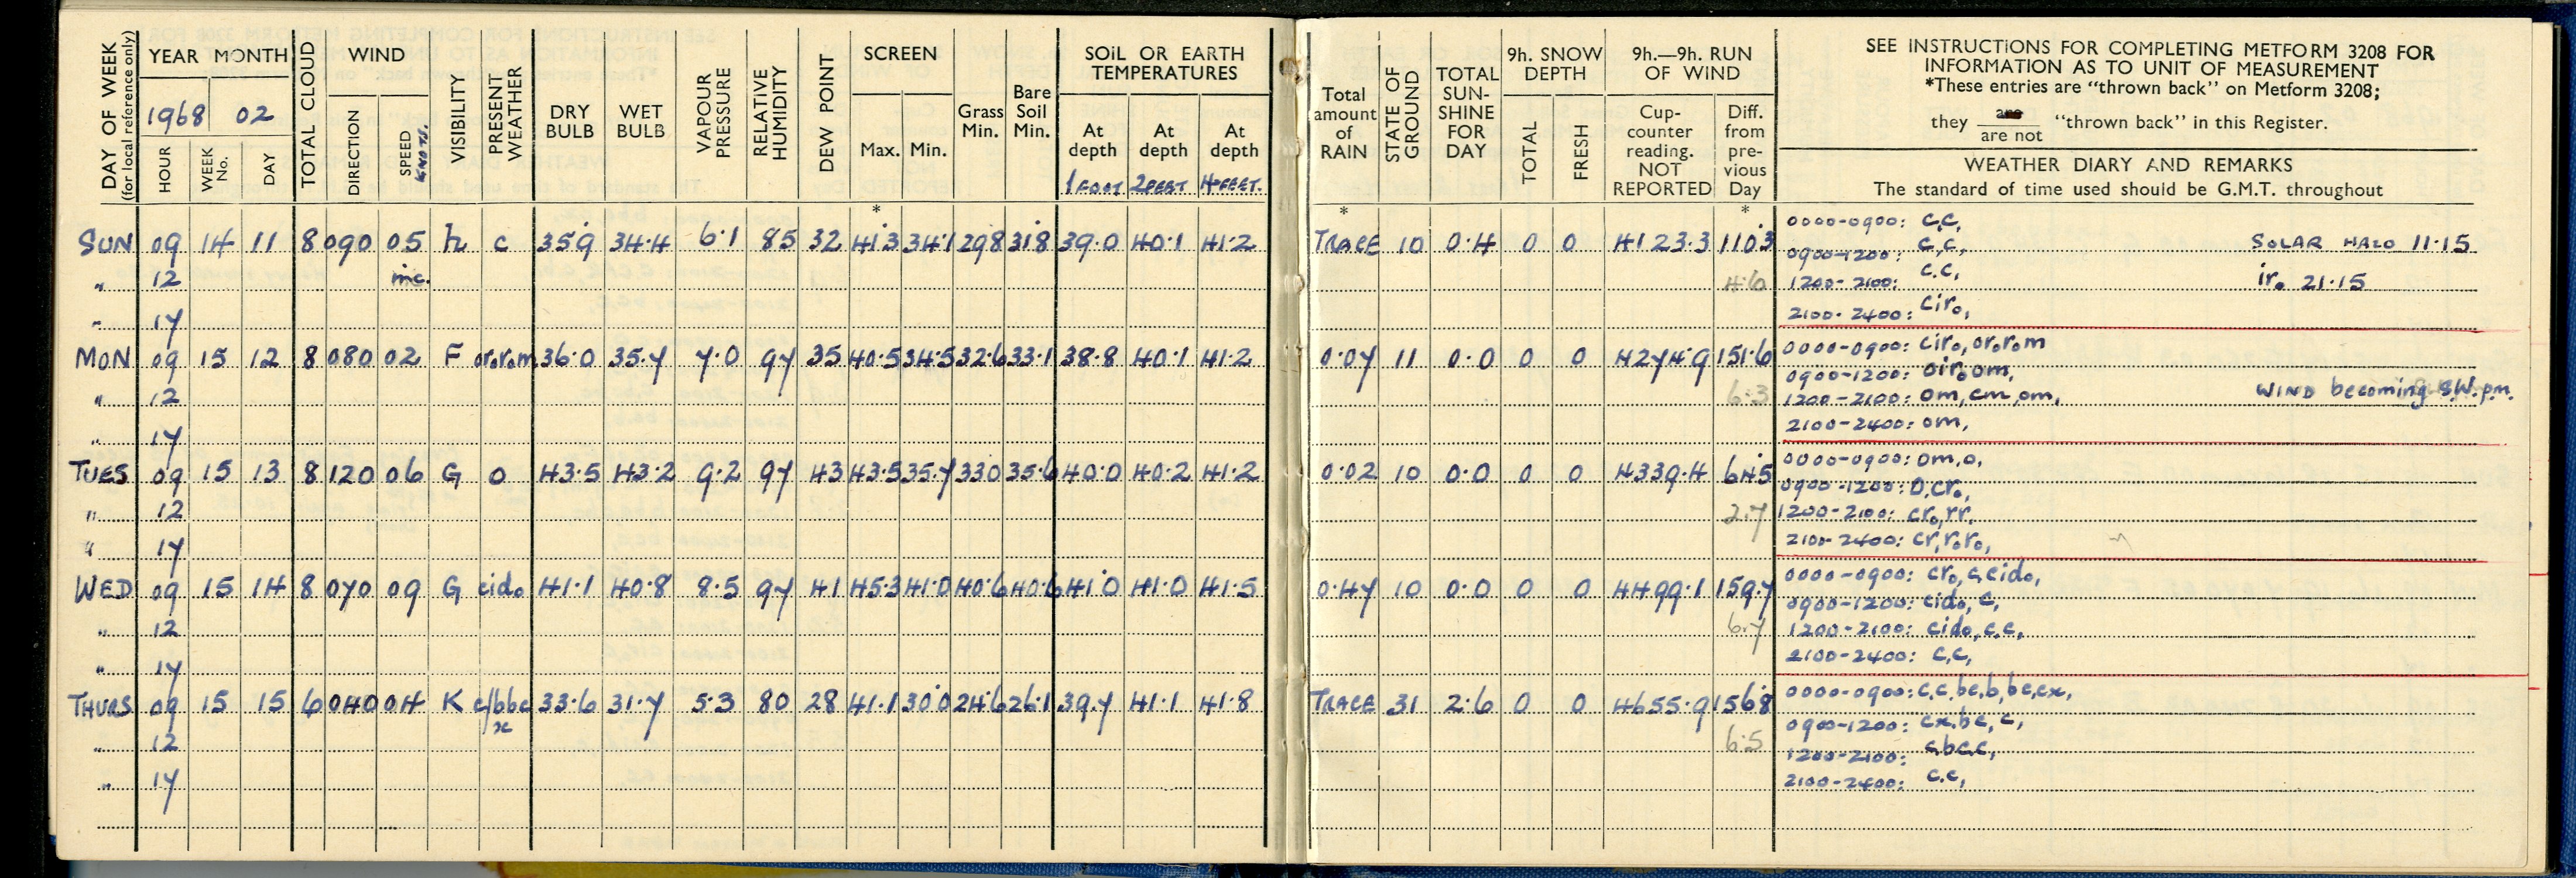 DAY OF WEEK (for local reference only) YEAR MONTH TOTAL CLOUD WIND VISIBILITY PRESENT WEATHER DRY BULB WET BULB VAPOUR PRESSURE RELATIVE HUMIDITY DEW POINT SCREEN Grass Min. Bare Soil Min. SOIL OR EARTH TEMPERATURES
1968 02
HOUR WEEK No. DAY DIRECTION SPEED KNOTS. Max. Min. At depth At depth At depth
1 FOOT 2 FEET 4 FEET.
Total amount of RAIN STATE OF GROUND TOTAL SUN-SHINE FOR DAY 9h. SNOW DEPTH 9h.—9h. RUN OF WIND
TOTAL FRESH Cup-counter reading. NOT REPORTED Diff. from pre-vious Day
SEE INSTRUCTIONS FOR COMPLETING METFORM 3208 FOR
INFORMATION AS TO UNIT OF MEASUREMENT
*These entries are "thrown back" on Metform 3208;
they are / are not "thrown back" in this Register.
WEATHER DIARY AND REMARKS
The standard of time used should be G.M.T. throughout
* * *
SUN 09 14 11 8 090 05 h c 35.9 34.4 6.1 85 32 41.3 34.1 29.8 31.8 39.0 40.1 41.2 TRACE 10 0.4 0 0 4123.3 110.3 0000-0900: c,c,
0900-1200: c,c, SOLAR HALO 11.15
" 12 mc. 4.6 1200-2100: c.c, ir₀ 21.15
" 17 2100-2400: cir₀,
MON 09 15 12 8 080 02 F or₀r₀m 36.0 35.7 7.0 97 35 40.5 34.5 32.6 33.1 38.8 40.1 41.2 0.07 11 0.0 0 0 4274.9 151.6 0000-0900: cir₀, or₀r₀m
0900-1200: oir₀om,
" 12 6.3 1200-2100: om, cm, om, WIND becoming S.W. p.m.
" 17 2100-2400: om,
TUES 09 15 13 8 120 06 G o 43.5 43.2 9.2 97 43 43.5 35.7 33.0 35.6 40.0 40.2 41.2 0.02 10 0.0 0 0 4339.4 64.5 0000-0900: om,o,
0900-1200: o,cr₀,
" 12 2.7 1200-2100: cr₀,rr,
" 17 2100-2400: cr,r₀r₀,
WED 09 15 14 8 070 09 G cid₀ 41.1 40.8 8.5 97 41 45.3 41.0 40.6 40.6 41.0 41.0 41.5 0.47 10 0.0 0 0 4499.1 159.7 0000-0900: cr₀, c, cid₀,
0900-1200: cid₀, c,
" 12 6.7 1200-2100: cid₀, c.c,
" 17 2100-2400: c,c,
THURS 09 15 15 6 040 04 K c/bbc x 33.6 31.7 5.3 80 28 41.1 30.0 24.6 26.1 39.7 41.1 41.8 TRACE 31 2.6 0 0 4655.9 156.8 0000-0900: c.c, bc,b, bc,cx,
0900-1200: cx,bc, c,
" 12 6.5 1200-2100: c,bc,c,
" 17 2100-2400: c.c,